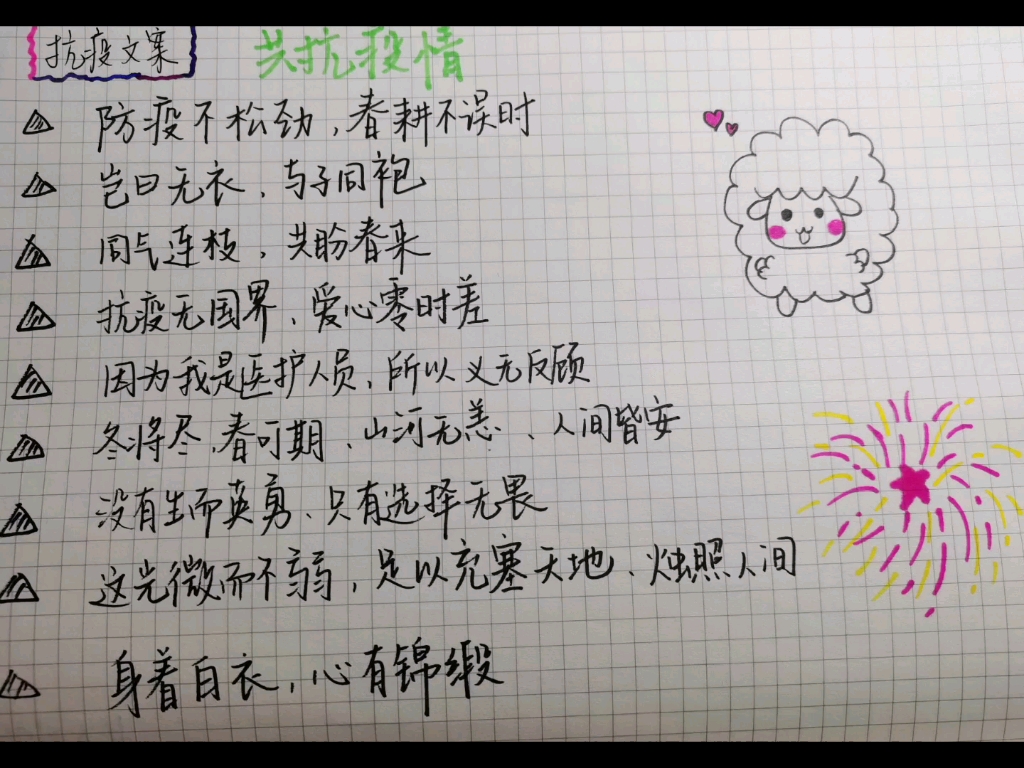 抗疫文案
共抗疫情
防疫不松劲，春耕不误时
岂曰无衣、与子同袍
同气连枝，共盼春来
抗疫无国界、爱心零时差
因为我是医护人员、所以义无反顾
冬将尽、春可期、山河无恙、人间皆安
没有生而英勇、只有选择无畏
这光微而不弱，足以充塞天地、烛照人间
身着白衣，心有锦缎